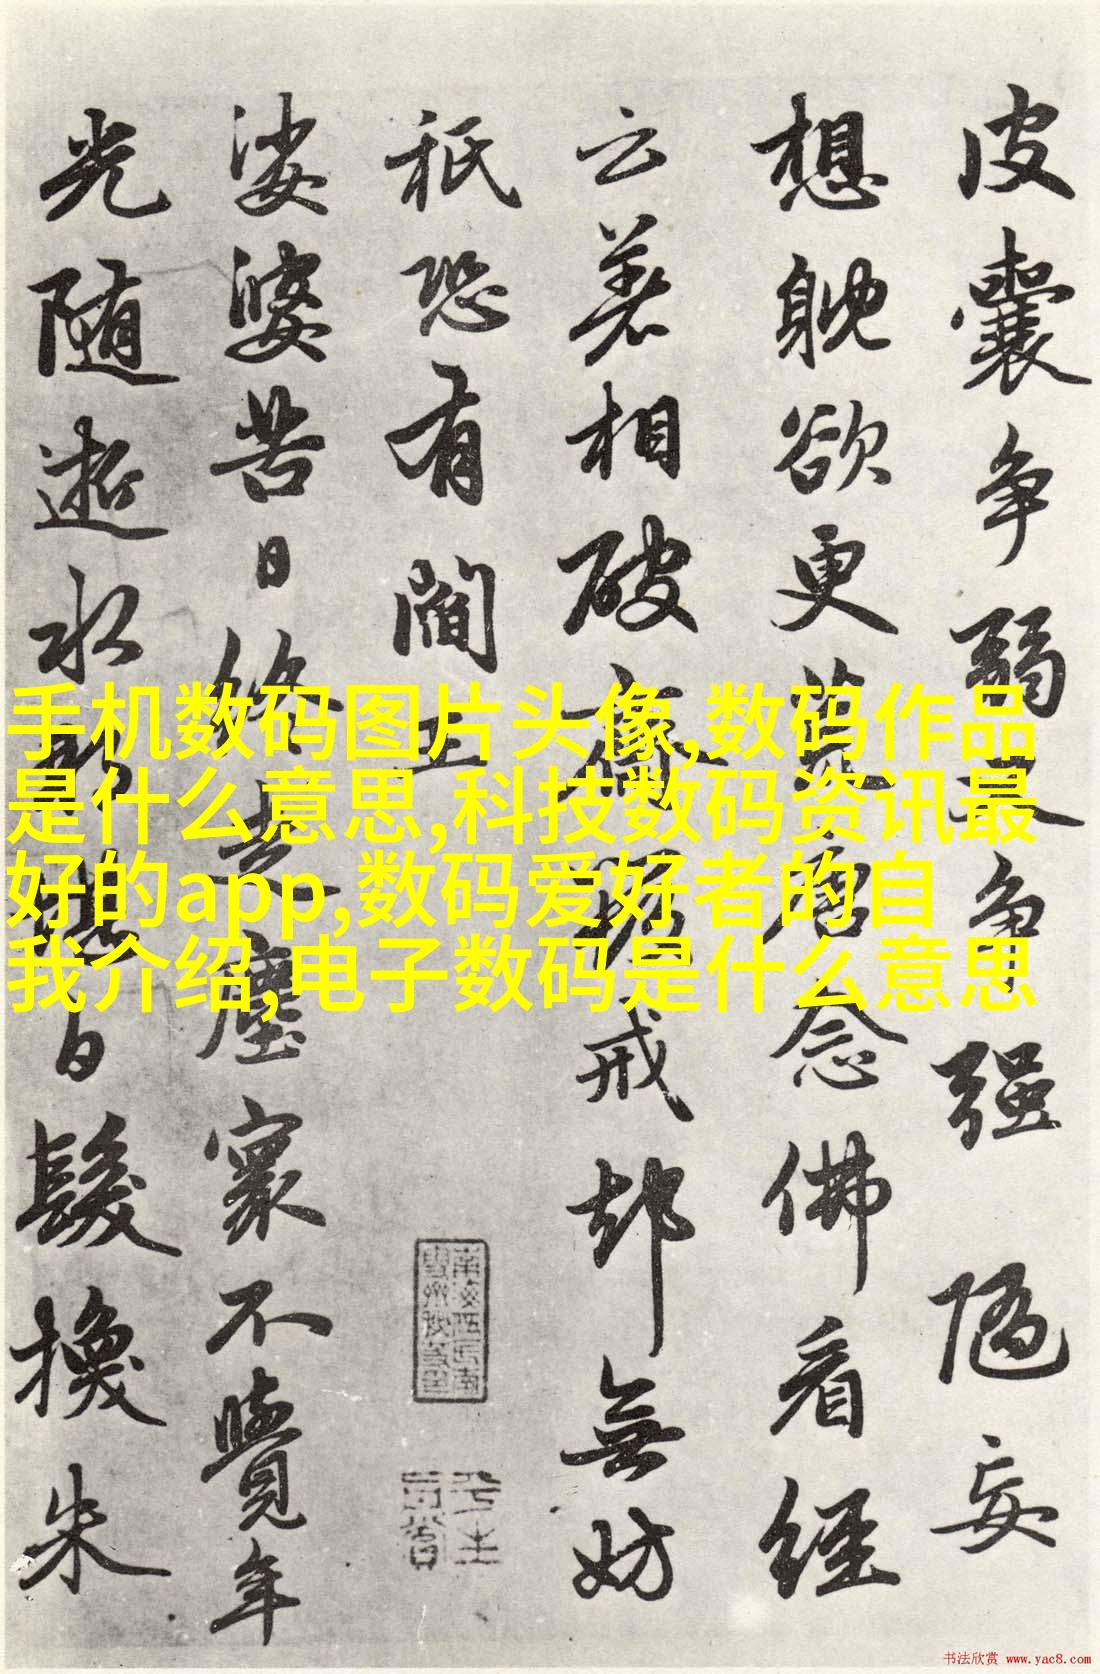 皮囊争弱又争强随妄
想躭欲更荒唐念佛看经
云若相破斋毁戒却無妨
祇恐有閻王
娑婆苦日終之塵寰不覺年
光随逝水
白髮換朱
手机数码图片头像,数码作品
是什么意思,科技数码资讯最
好的app,数码爱好者的自
我介绍,电子数码是什么意思
书法欣赏 www.yac8.com